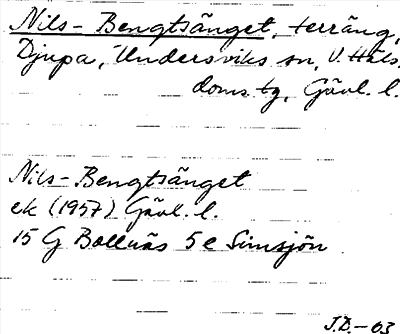 Nils-Bengtsänget, terräng,
Djupa, Undersviks sn, V. Häls.
doms tg, Gävl. l.
Nils-Bengtsänget
ek (1957) Gävl. l.
15 G Bollnäs 5 e Simsjön
J.D.-03